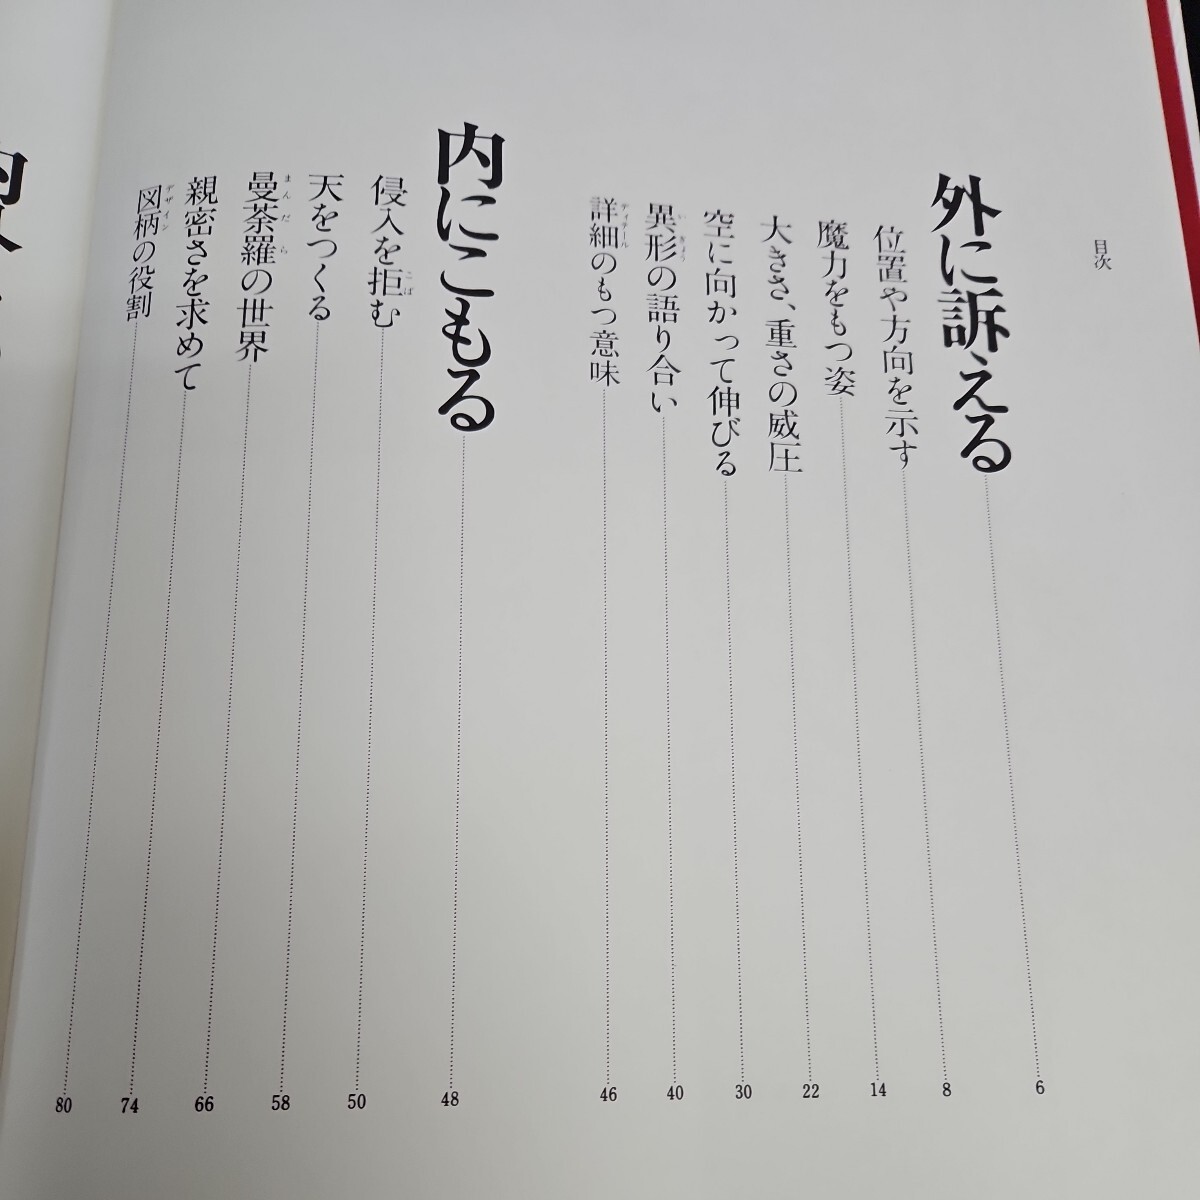 目次
外に訴える 6
位置や方向を示す 8
魔力をもつ姿 14
大きさ、重さの威圧 22
空に向かって伸びる 30
異形の語り合い 40
いぎょう
詳細のもつ意味 46
ディテール
内にこもる 48
侵入を拒む 50
こば
天をつくる 58
曼荼羅の世界 66
まんだら
親密さを求めて 74
図柄の役割 80
デザイン